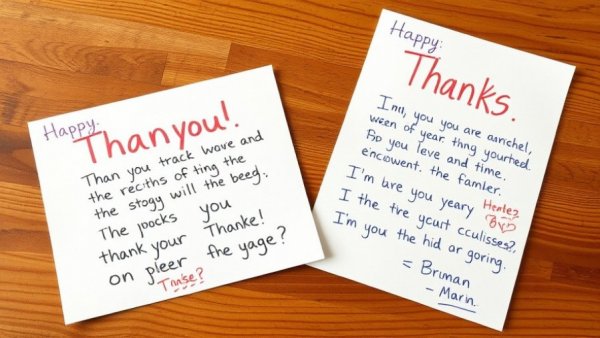 Happy.
Thanyou!
Than you track wove and
the reciths of ting the
the stogy will the beeg:.
The jpocks you
thank your Thanke!
on pleer fhe yage?
Tnise?
Happy:
Thanks.
you you are asnrichel,
ween of year thng yourhed.
you leve and time.
eincowent. the famler.
I'm bre you yeary
I the tire ycurt cculisses?,
I'm you the hid ar goring.
= Bruman
- Marin.